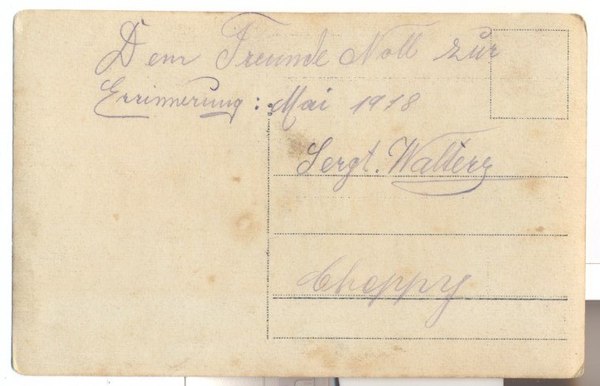 Dem Freunde Noll zur
Errinnerung: Mai 1918
Sergt. Walterz
Cheppy